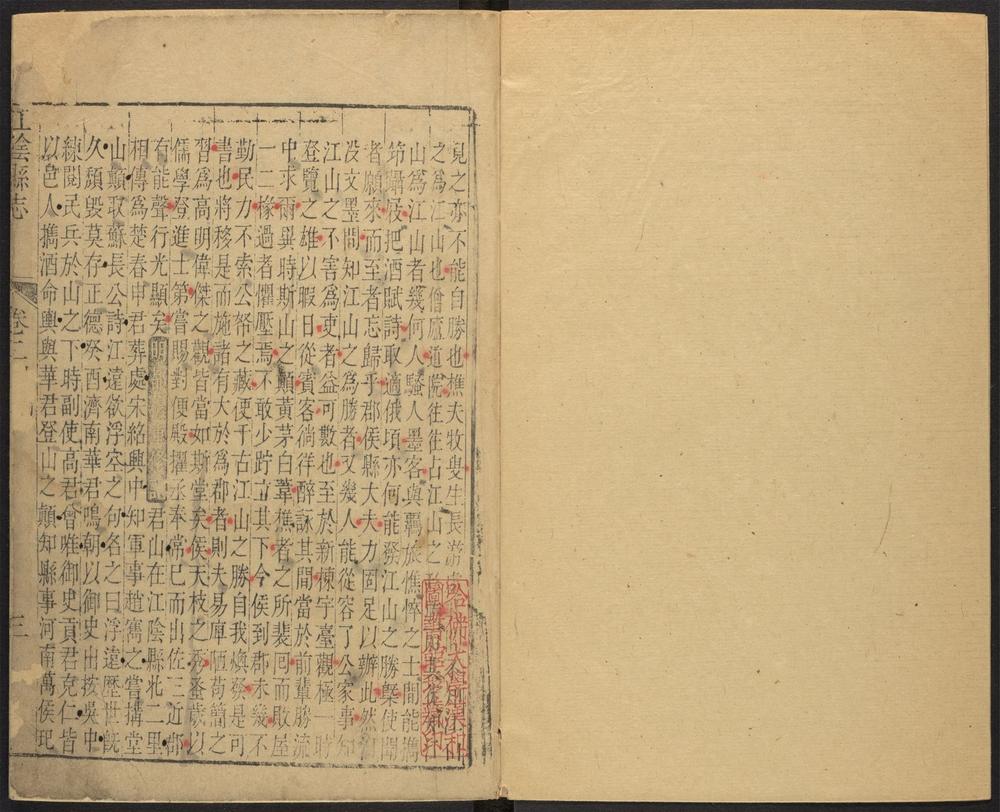 見之亦不能自勝也樵夫牧叟生長游
之為江山也僧廬道院往往占江山之
山為江山者幾何人騷人墨客與羇旅憔悴之士間能攜
笻躡屐把酒賦詩取適俄頃亦何能發江山之勝槩使聞
者願來而至者忘歸乎郡侯縣大夫力固足以辦此然
没文墨間知江山之為勝者又幾人能從容了公家事知
江山之不害為吏者益可數也至於新棟宇臺觀極一時
登覽之雄以暇日從賓客徜徉醉詠其間當於前輩勝流
中求爾異時斯山之顛黃茅白葦樵者之所裴囘而敗屋
一二椽過者懼壓焉不敢少跱立其下今侯到郡未幾不
勤民力不索公帑之藏便千古江山之勝自我煥發是可
書也將移是而施諸有大於為郡者則夫易庳陋茍簡之
習為高明偉傑之觀皆當如斯堂矣侯天枝之秀蚤歲以
儒學登進士第嘗賜對便殿擢丞奉常已而出佐三近郡
有能聲行光顯矣君山在江陰縣北二里
相傳為楚春申君葬處宋紹興中知軍事趙寯之嘗搆堂
山顛取蘇長公詩江遠欲浮空之句名之曰浮遠歷世旣
久頹毀莫存正德癸酉濟南華君鳴朝以御史出按吳中
練閱民兵於山之下時副使高君曾唯御史貢君克仁皆
以邑人攜酒命輿與華君登山之顛知縣事河南萬侯玘
江陰縣志
卷二
三
哈佛大學漢和
圖書館珍藏印